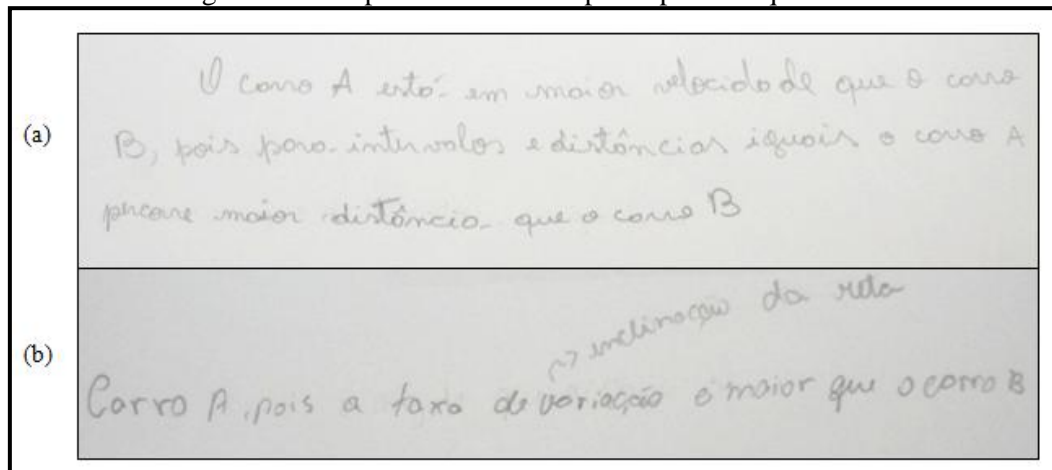 (a)
O carro A está em maior velocidade que o carro
B, pois para intervalos e distâncias iguais o carro A
percorre maior distância que o carro B
(b)
↗ inclinação da reta
Carro A, pois a taxa de variação é maior que o carro B